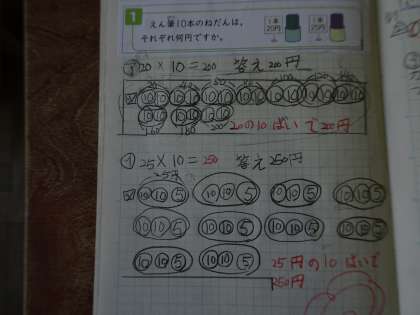 1
えん筆10本のねだんは、
それぞれ何円ですか。
1本
20円
1本
25円
㋐20×10=200 答え200円
20 40 60 80 100 120 140
図 10 10 10 10 10 10 10 10 10 10 10 10 10 10
10 10 10 10 10 10
160 180 200
20の10ばいで200円
㋑25×10=250 答え250円
25円
図 10 10 5 10 10 5 10 10 5 10 10 5
10 10 5 10 10 5 10 10 5 10 10 5
10 10 5 10 10 5
25円の10ばいで
250円